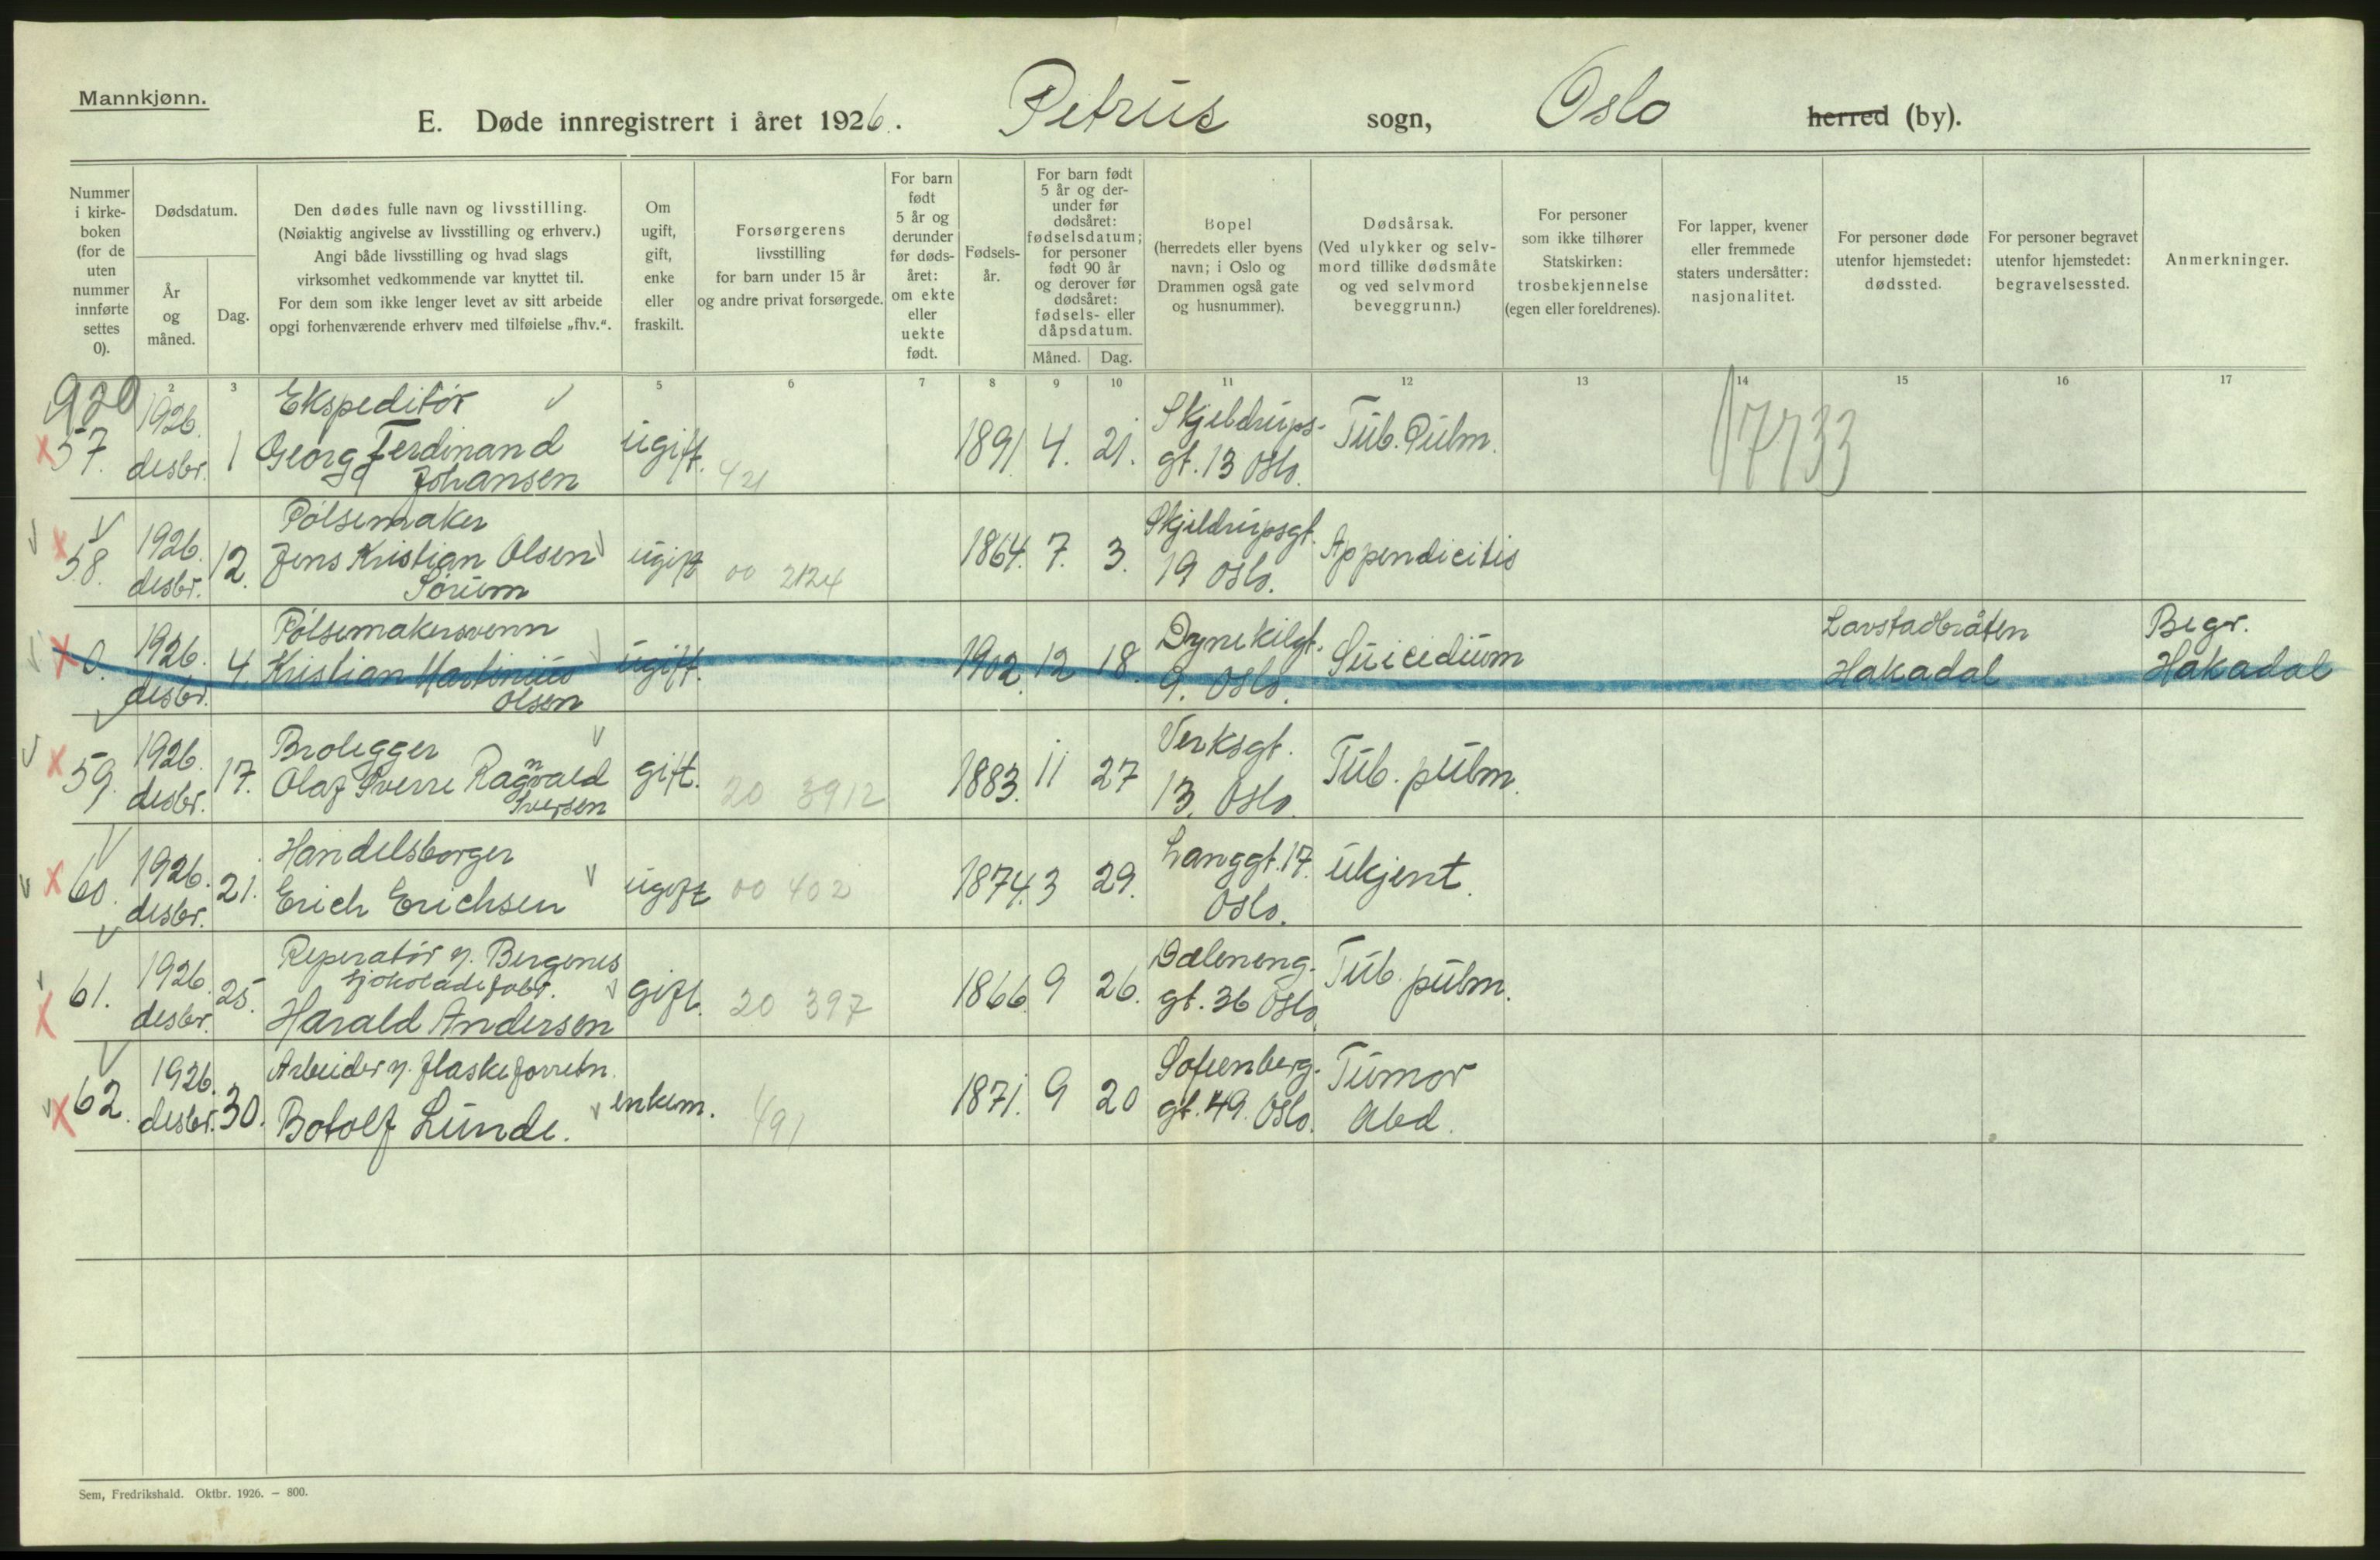 Mannkjønn.
E. Døde innregistrert i året 1926. Petrus sogn, Oslo herred (by).
Nummer i kirke- boken (for de uten nummer innførte settes 0).
Dødsdatum.
År og måned.
Dag.
Den dødes fulle navn og livsstilling.
(Nøiaktig angivelse av livsstilling og erhverv.)
Angi både livsstilling og hvad slags
virksomhet vedkommende var knyttet til.
For dem som ikke lenger levet av sitt arbeide
opgi forhenværende erhverv med tilføielse „fhv.“.
Om ugift, gift, enke eller fraskilt.
Forsørgerens
livsstilling
for barn under 15 år
og andre privat forsørgede.
For barn født 5 år og derunder før døds- året: om ekte eller uekte født.
Fødsels- år.
For barn født 5 år og der- under før dødsåret: fødselsdatum; for personer født 90 år og derover før dødsåret: fødsels- eller dåpsdatum.
Måned. Dag.
Bopel
(herredets eller byens
navn; i Oslo og
Drammen også gate
og husnummer).
Dødsårsak.
(Ved ulykker og selv-
mord tillike dødsmåte
og ved selvmord
beveggrunn.)
For personer
som ikke tilhører
Statskirken:
trosbekjennelse
(egen eller foreldrenes).
For lapper, kvener
eller fremmede
staters undersåtter:
nasjonalitet.
For personer døde
utenfor hjemstedet:
dødssted.
For personer begravet
utenfor hjemstedet:
begravelsessted.
Anmerkninger.
2 3 5 6 7 8 9 10 11 12 13 14 15 16 17
920
57. 1926. desbr. 1 Ekspeditør
Georg Ferdinand
Johansen
ugift. 421 1891 4. 21. Skjeldrups-
gt. 13 Oslo. Tub. Pulm. 17733
58. 1926. desbr. 12. Pølsemaker
Jens Kristian Olsen
Sørum
ugift 00 2124 1864. 7. 3. Skjeldrupsgt.
19 Oslo. Appendicitis
0. 1926. desbr. 4. Pølsemakersvenn
Kristian Martinius
Olsen
ugift. 1902. 12 18. Dynekilgt.
9. Oslo. Suicidium Lavstadbråten
Hakadal Begr.
Hakadal
59. 1926. desbr. 17. Brolegger
Olaf Sverre Ragnvald
Iversen
gift. 20 3912 1883. 11 27 Verksgt.
13. Oslo. Tub. pulm.
60. 1926. desbr. 21. Handelsborger
Erich Erichsen
ugift 00 402 1874. 3 29. Langgt. 17.
Oslo. ukjent.
61. 1926 desbr. 25. Reperatør v. Bergenes
sjokoladefabr.
Harald Andersen
gift. 20 397 1866 9 26. Dæleneng-
gt. 36 Oslo. Tub. pulm.
62. 1926. desbr. 30. Arbeider v. flaskeforretn.
Botolf Lunde.
enkem. 491 1871. 9 20 Sofienberg-
gt. 49. Oslo. Tumor
Abd.
Sem, Fredrikshald. Oktbr. 1926. – 800.